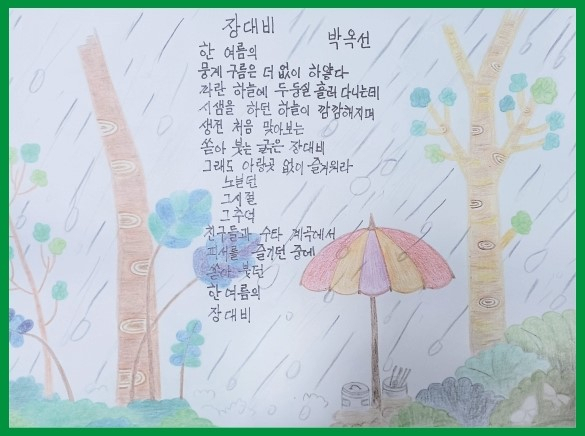 장대비
박옥선
한 여름의
뭉게 구름은 더 없이 하얗다
파란 하늘에 두둥실 흘러 다니는데
시샘을 하던 하늘이 캄캄해지며
생전 처음 맞아보는
쏟아 붓는 굵은 장대비
그래도 아랑곳 없이 즐거워라
노닐던
그시절
그추억
친구들과 수타 계곡에서
피서를 즐기던 중에
쏟아 붓던
한 여름의
장대비